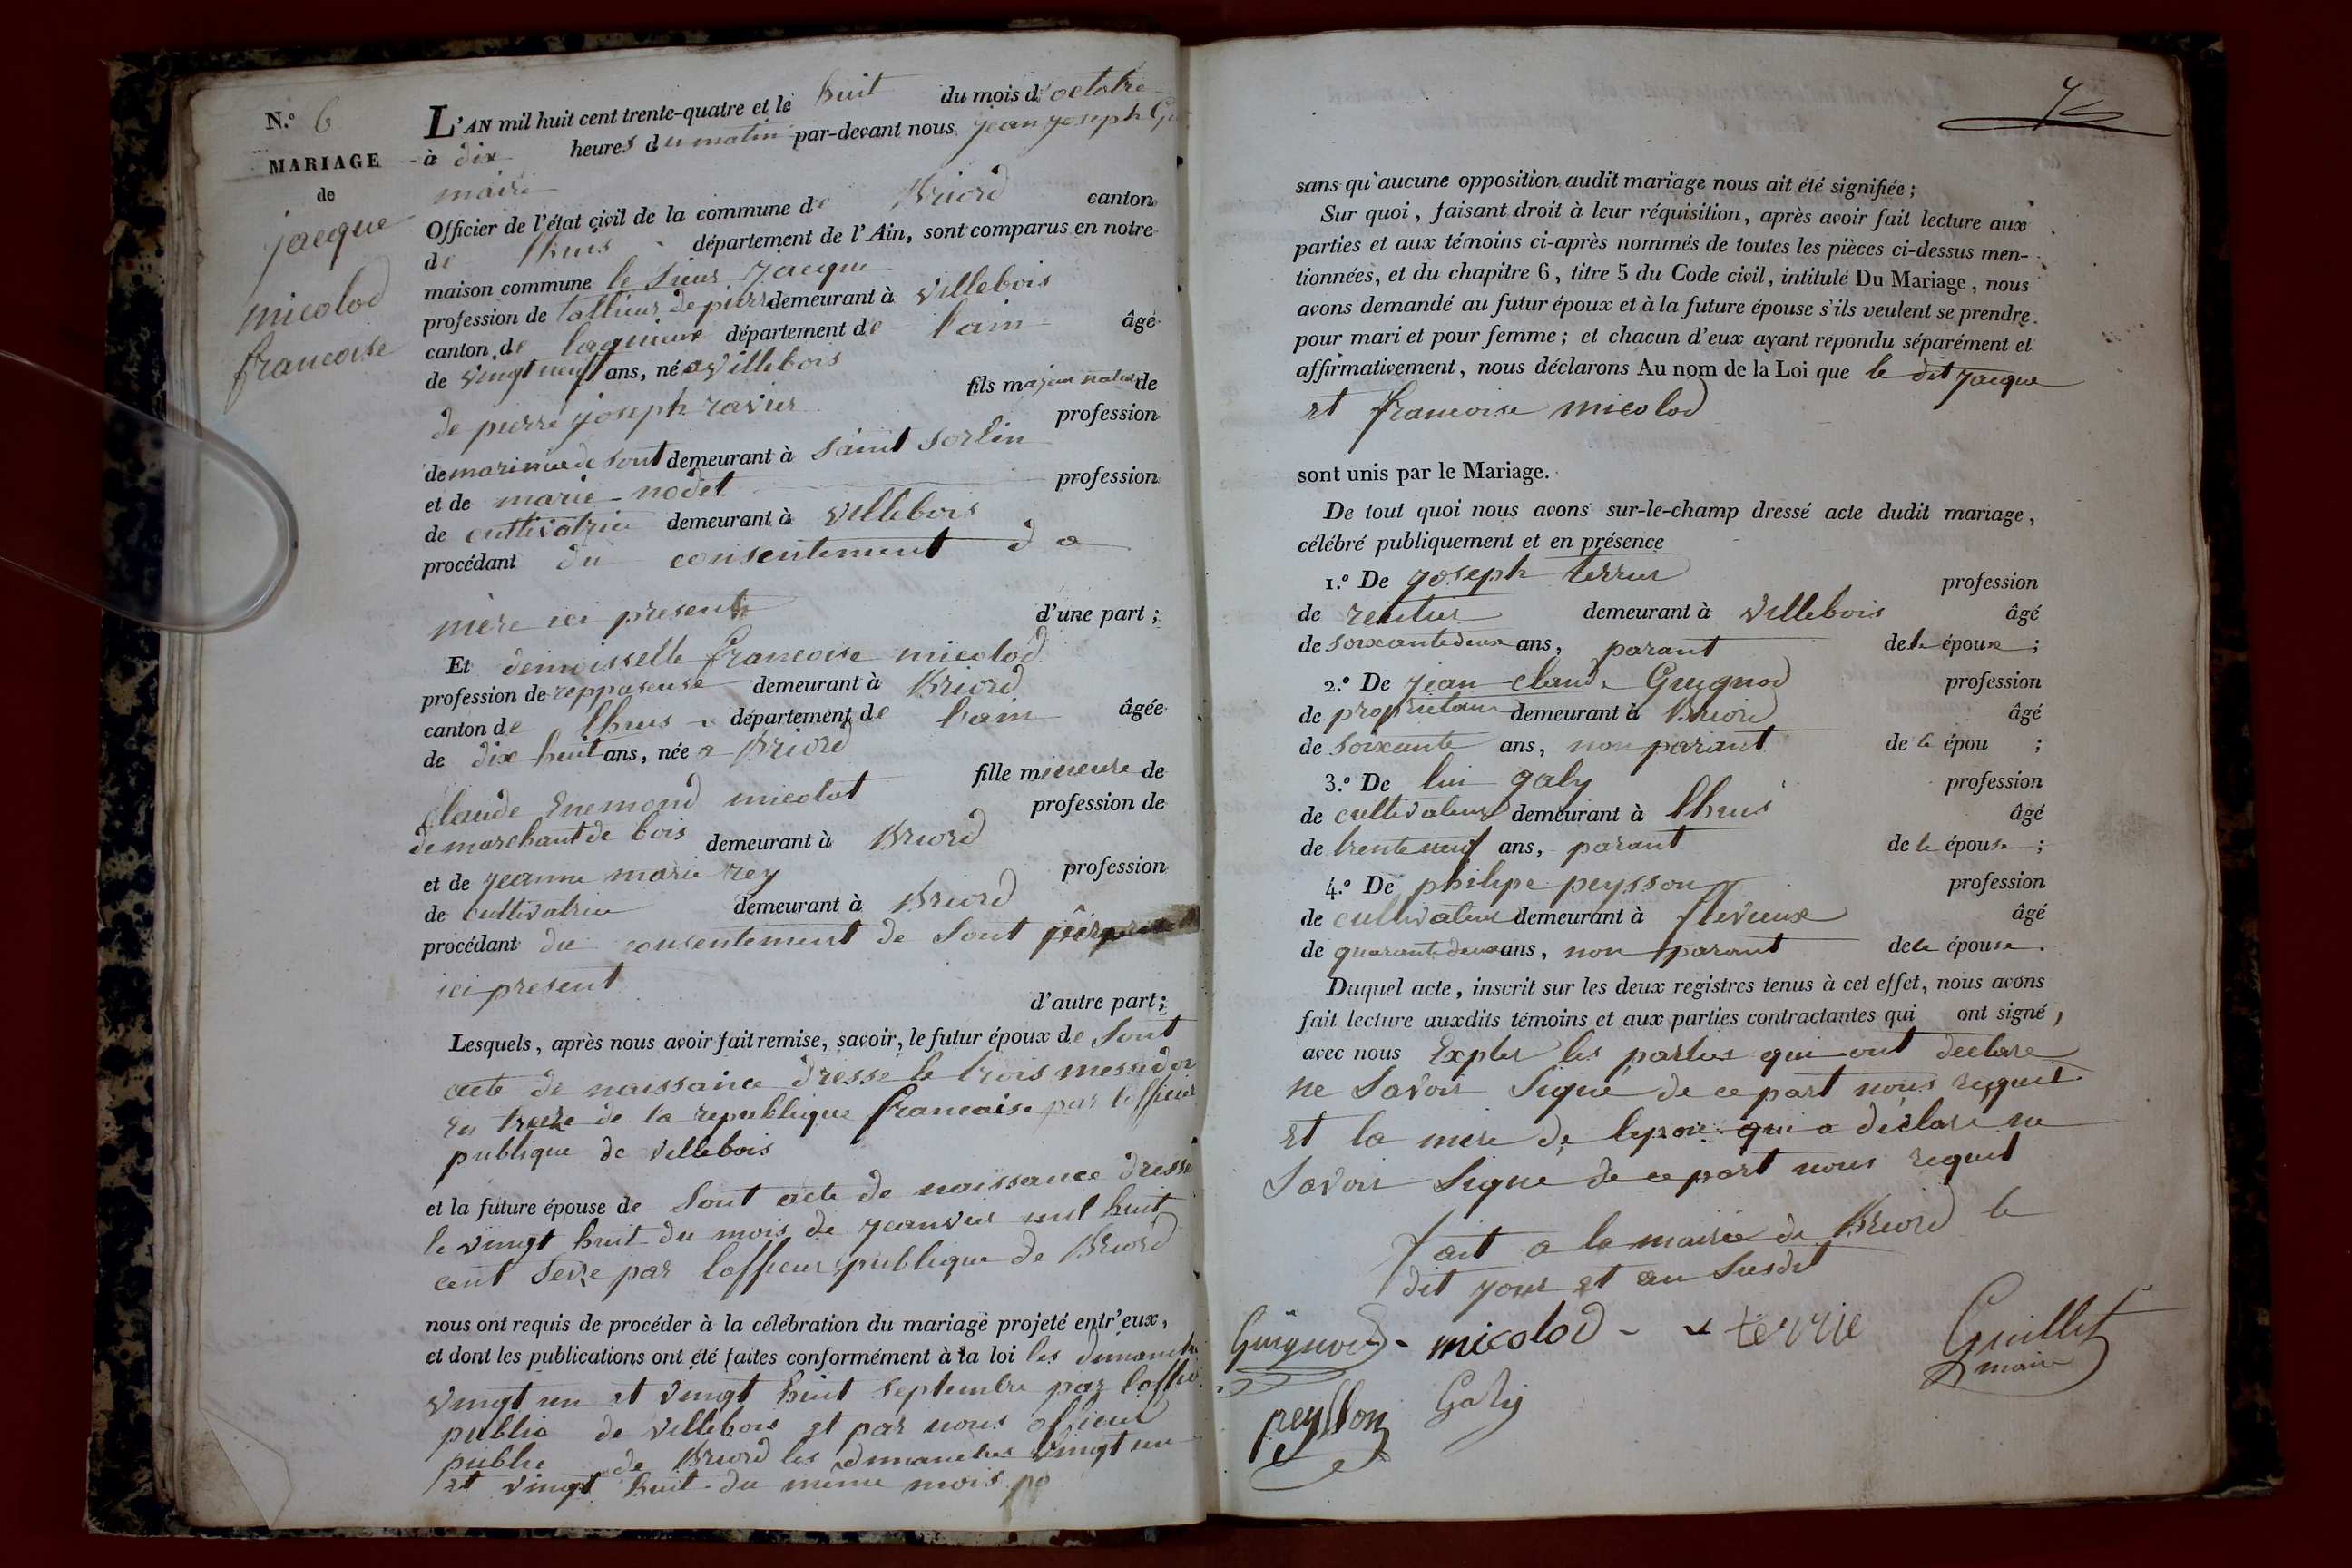 N.º 6
MARIAGE
de
jacque
micolod
francoise
L'AN mil huit cent trente-quatre et le huit du mois d'octobre
à dix heures du matin par-devant nous jean joseph
maire
Officier de l'état civil de la commune de Briord canton
de lhuis département de l'Ain, sont comparus en notre
maison commune le sieur jacque
profession de tallieur de pierre demeurant à villebois
canton de lagnieux département de lain âgé
de vingt neuf ans, né a villebois
fils majeur naturel de
de pierre joseph ravier profession
de marinier de sont demeurant à saint sorlin
et de marie nodet profession
de cultivatrice demeurant à villebois
procédant du consentement d a
mere ici presente d'une part ;
Et demoisselle francoise micolod
profession de reppaseuse demeurant à Briord
canton de lhuis département de lain âgée
de dix huit ans, née a Briord
fille mineure de
claude Enemond micolot profession de
de marchant de bois demeurant à Briord
et de jeanne marie rey profession
de cultivatrice demeurant à Briord
procédant du consentement de sont père
ici present
d'autre part ;
Lesquels, après nous avoir fait remise, savoir, le futur époux de sont
acte de naissance dressé le trois messidor
en treize de la republique francaise par lofficier
publique de villebois
et la future épouse de sont acte de naissance dresse
le vingt huit du mois de jeanvier mil huit
cent seize par lofficier publique de Briord
nous ont requis de procéder à la célébration du mariage projeté entr'eux,
et dont les publications ont été faites conformément à la loi les dimanche
vingt un et vingt huit septembre par loffici
public de villebois et par nous officier
public de Briord les dimanches vingt un
et vingt huit du même mois
7
sans qu'aucune opposition audit mariage nous ait été signifiée ;
Sur quoi, faisant droit à leur réquisition, après avoir fait lecture aux
parties et aux témoins ci-après nommés de toutes les pièces ci-dessus men-
tionnées, et du chapitre 6, titre 5 du Code civil, intitulé Du Mariage, nous
avons demandé au futur époux et à la future épouse s'ils veulent se prendre
pour mari et pour femme ; et chacun d'eux ayant répondu séparément et
affirmativement, nous déclarons Au nom de la Loi que le dit jacque
et francoise micolod
sont unis par le Mariage.
De tout quoi nous avons sur-le-champ dressé acte dudit mariage,
célébré publiquement et en présence
1.º De joseph terrier profession
de rentier demeurant à villebois âgé
de soixante deux ans, parant de le époux ;
2.º De jean claude Guignod profession
de proprietaire demeurant à Briord âgé
de soixante ans, non parant de le épou ;
3.º De lui galy profession
de cultivateur demeurant à lhuis âgé
de trente neuf ans, parant de le épouse ;
4.º De philipe peysson profession
de cultivateur demeurant à flevieux âgé
de quarante deux ans, non parant de le épouse.
Duquel acte, inscrit sur les deux registres tenus à cet effet, nous avons
fait lecture auxdits témoins et aux parties contractantes qui ont signé,
avec nous Expter les parties qui ont declare
ne savoir signe de ce part nous requit
et la mere de lepoux qui a déclaré ne
savoir signe de ce part nous requit
fait a la mairie de Briord le
dit jour et an susdit
Guignod micolod terrie Guillet
maire
peysson Galy